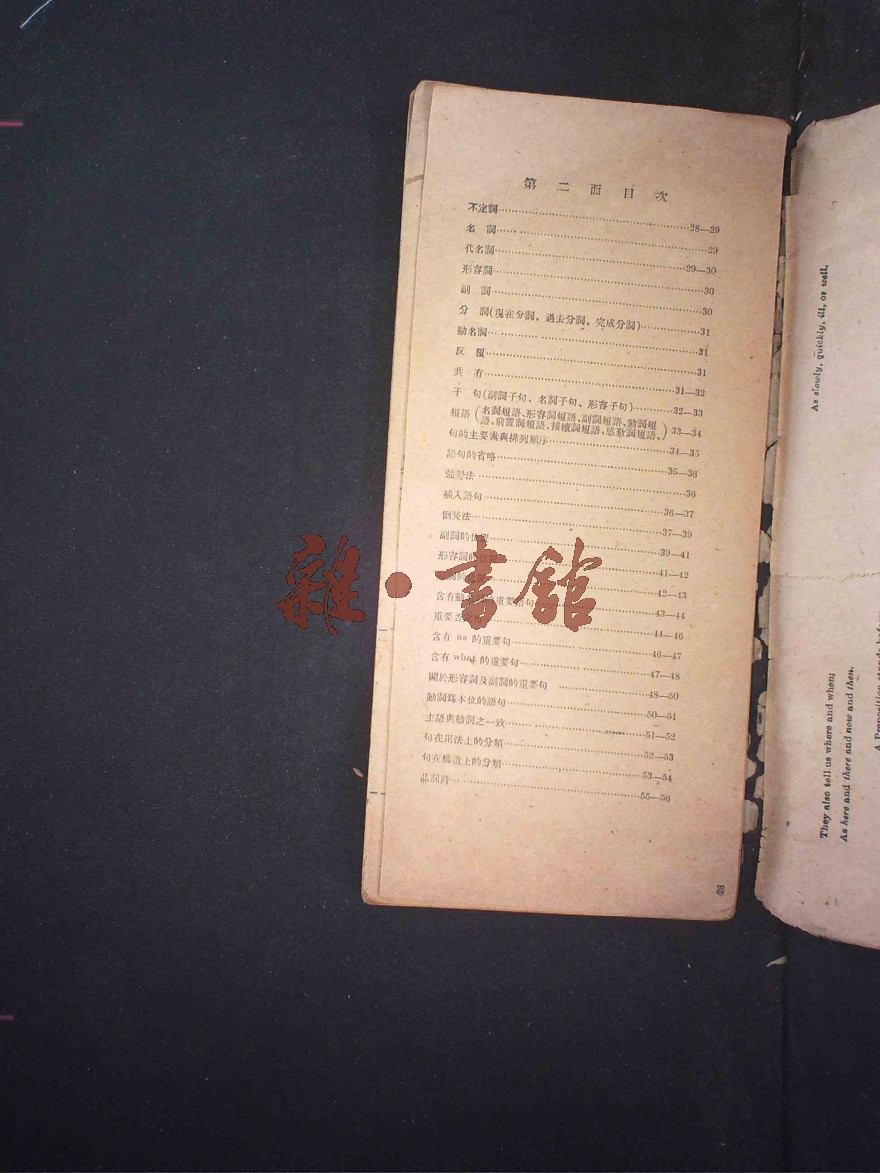 第二面目次
不定詞……28—29
名　詞……29
代名詞……29—30
形容詞……30
副　詞……30
分　詞(現在分詞、過去分詞、完成分詞)……31
動名詞……31
反　覆……31
共　有……31—32
子　句(副詞子句、名詞子句、形容子句)……32—33
短語(名詞短語、形容詞短語、副詞短語、動詞短
語、前置詞短語、接續詞短語、感歎詞短語、)33—34
句的主要素與排列順序……34—35
語句的省略……35—36
強勢法……36
插入語句……36—37
倒裝法……37—39
副詞的位置……39—41
形容詞的位置……41—42
……42—43
含有動……重要語句……43—44
重要否……44—46
含有 as 的重要句……46—47
含有 what 的重要句……47—48
關於形容詞及副詞的重要句……48—50
動詞為本位的語句……50—51
主語與動詞之一致……51—52
句在用法上的分類……52—53
句在構造上的分類……53—54
品詞詩……55—56
28
雜·書館
As slowly, quickly, ill, or well.
They also tell us where and when;
As here and there and now and then.
A Preposition stands before